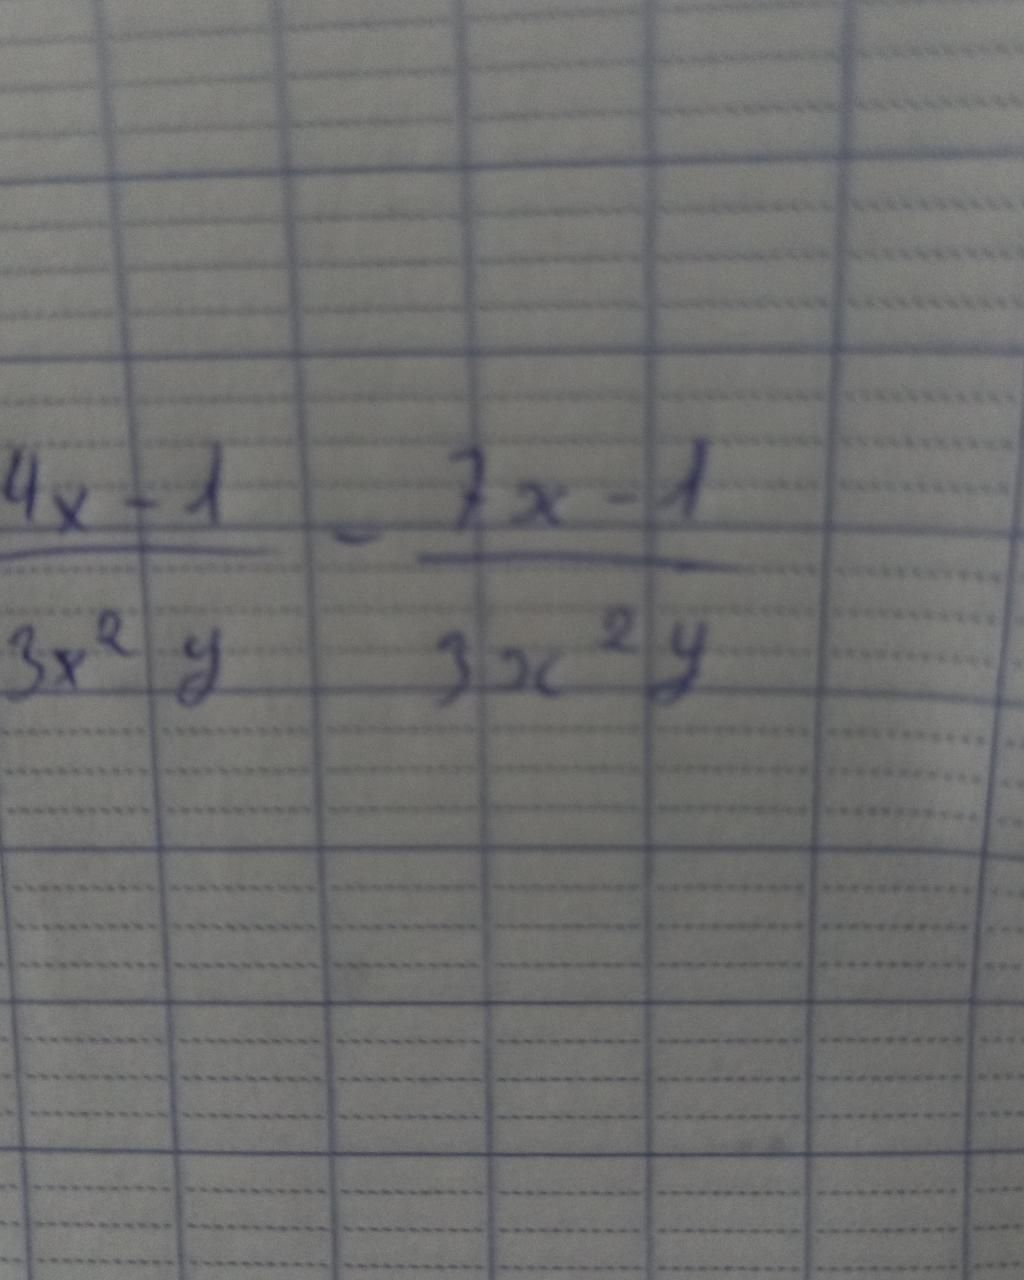 4x - 1 / 3x² y - 7x - 1 / 3x² y